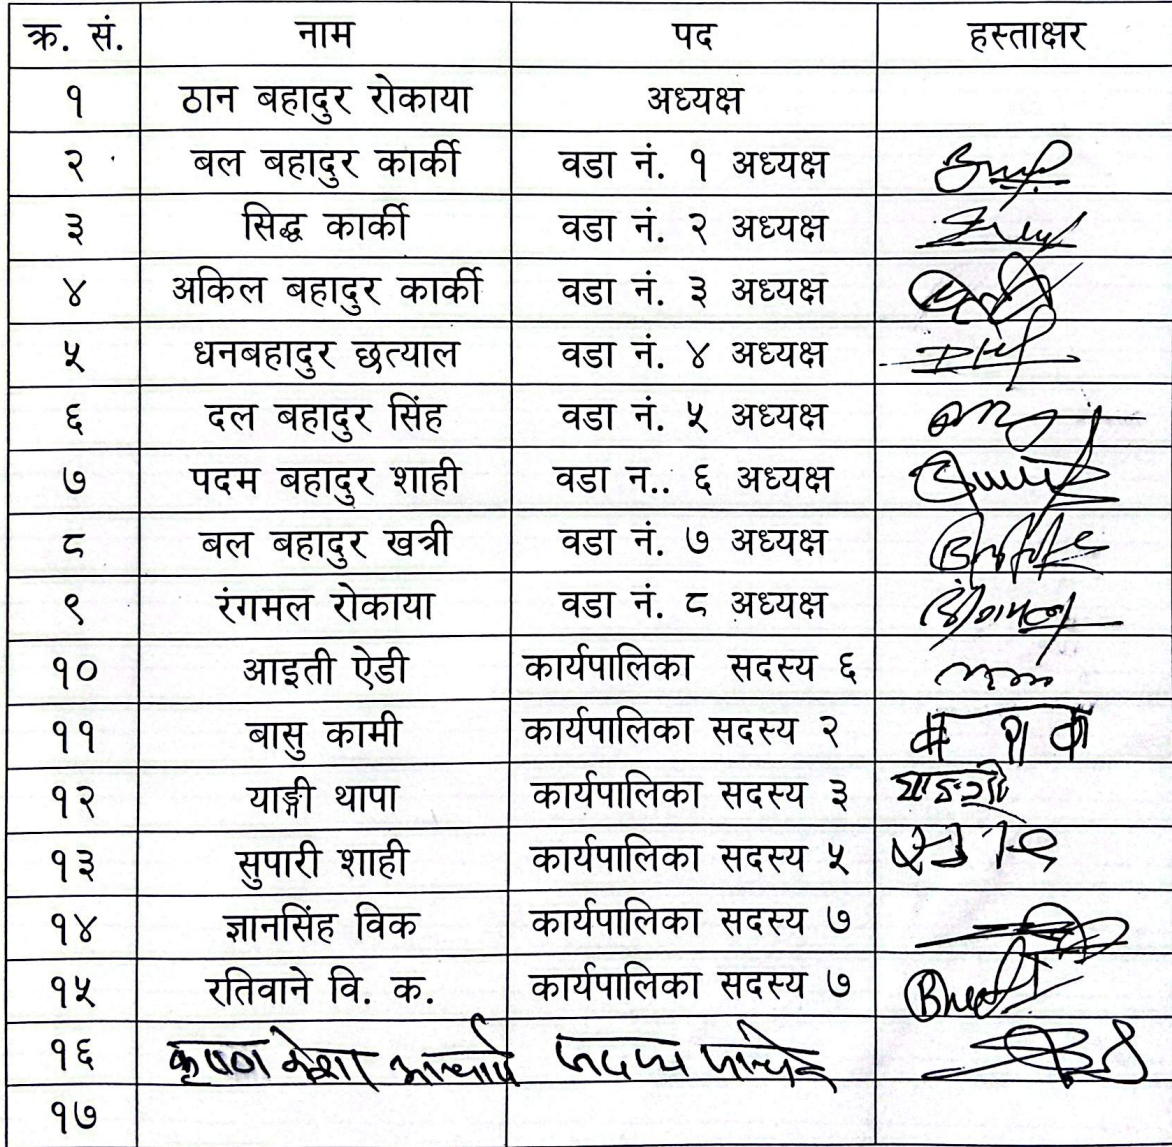 क्र. सं. नाम पद हस्ताक्षर
१ ठान बहादुर रोकाया अध्यक्ष
२ बल बहादुर कार्की वडा नं. १ अध्यक्ष
३ सिद्ध कार्की वडा नं. २ अध्यक्ष
४ अकिल बहादुर कार्की वडा नं. ३ अध्यक्ष
५ धनबहादुर छत्याल वडा नं. ४ अध्यक्ष
६ दल बहादुर सिंह वडा नं. ५ अध्यक्ष
७ पदम बहादुर शाही वडा न.. ६ अध्यक्ष
८ बल बहादुर खत्री वडा नं. ७ अध्यक्ष
९ रंगमल रोकाया वडा नं. ८ अध्यक्ष
१० आइती ऐडी कार्यपालिका सदस्य ६
११ बासु कामी कार्यपालिका सदस्य २
१२ याङ्गी थापा कार्यपालिका सदस्य ३ याङगी
१३ सुपारी शाही कार्यपालिका सदस्य ५
१४ ज्ञानसिंह विक कार्यपालिका सदस्य ७
१५ रतिवाने वि. क. कार्यपालिका सदस्य ७
१६ कृष्ण केशर आचार्य सदस्य सचिव
१७